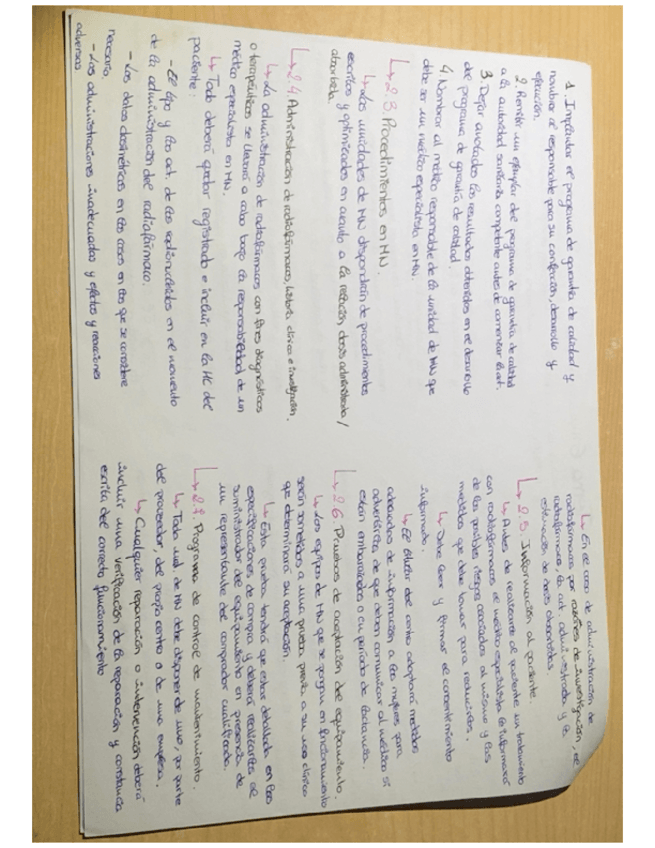 1. Implantar el programa de garantía de calidad y
nombrar al responsable para su confección, desarrollo y
ejecución.
2. Remitir un ejemplar del programa de garantía de calidad
a la autoridad sanitaria competente antes de comenzar la act.
3. Dejar anotados los resultados obtenidos en el desarrollo
del programa de garantía de calidad.
4. Nombrar al médico responsable de la unidad de MN que
debe ser un médico especialista en MN.
↳ 2.3. Procedimientos en MN.
↳ Las unidades de MN dispondrán de procedimientos
escritos y optimizados en cuanto a la relación dosis administrada/
absorbida.
↳ 2.4. Administración de radiofármacos, historia clínica e investigación.
↳ La administración de radiofármacos con fines diagnósticos
o terapéuticos se llevará a cabo bajo la responsabilidad de un
médico especialista en MN.
↳ Todo deberá quedar registrado e incluir en la HC del
paciente:
- El tipo y las act. de los radionúclidos en el momento
de la administración del radiofármaco.
- Los datos dosimétricos en los casos en los que se considere
necesario
- Las administraciones inadecuadas y efectos y reacciones
adversas
↳ En el caso de administración de
radiofármacos por razones de investigación, el
radiofármaco, la act. administrada y la
estimación de dosis absorbidas.
↳ 2.5. Información al paciente.
↳ Antes de realizarse al paciente un tratamiento
con radiofármacos el médico especialista le informará
de los posibles riesgos asociados al mismo y las
medidas que debe tomar para reducirlos.
↳ Debe leer y firmar el consentimiento
informado.
↳ El titular del centro adoptará medidas
adecuadas de información a las mujeres para
advertirlas de que deben comunicar al médico si
están embarazadas o en periodo de lactancia.
↳ 2.6. Pruebas de aceptación del equipamiento.
↳ Los equipos de MN que se pongan en funcionamiento
serán sometidos a una prueba previa a su uso clínico
que determinará su aceptación.
↳ Esta prueba tendrá que estar detallada en las
especificaciones de compra y deberá realizarlas el
suministrador del equipamiento en presencia de
un representante del comprador cualificado.
↳ 2.7. Programa de control de mantenimiento.
↳ Toda ud. de MN debe disponer de uno, por parte
del proveedor, del propio centro o de una empresa.
↳ Cualquier reparación o intervención deberá
incluir una verificación de la reparación y constancia
escrita del correcto funcionamiento